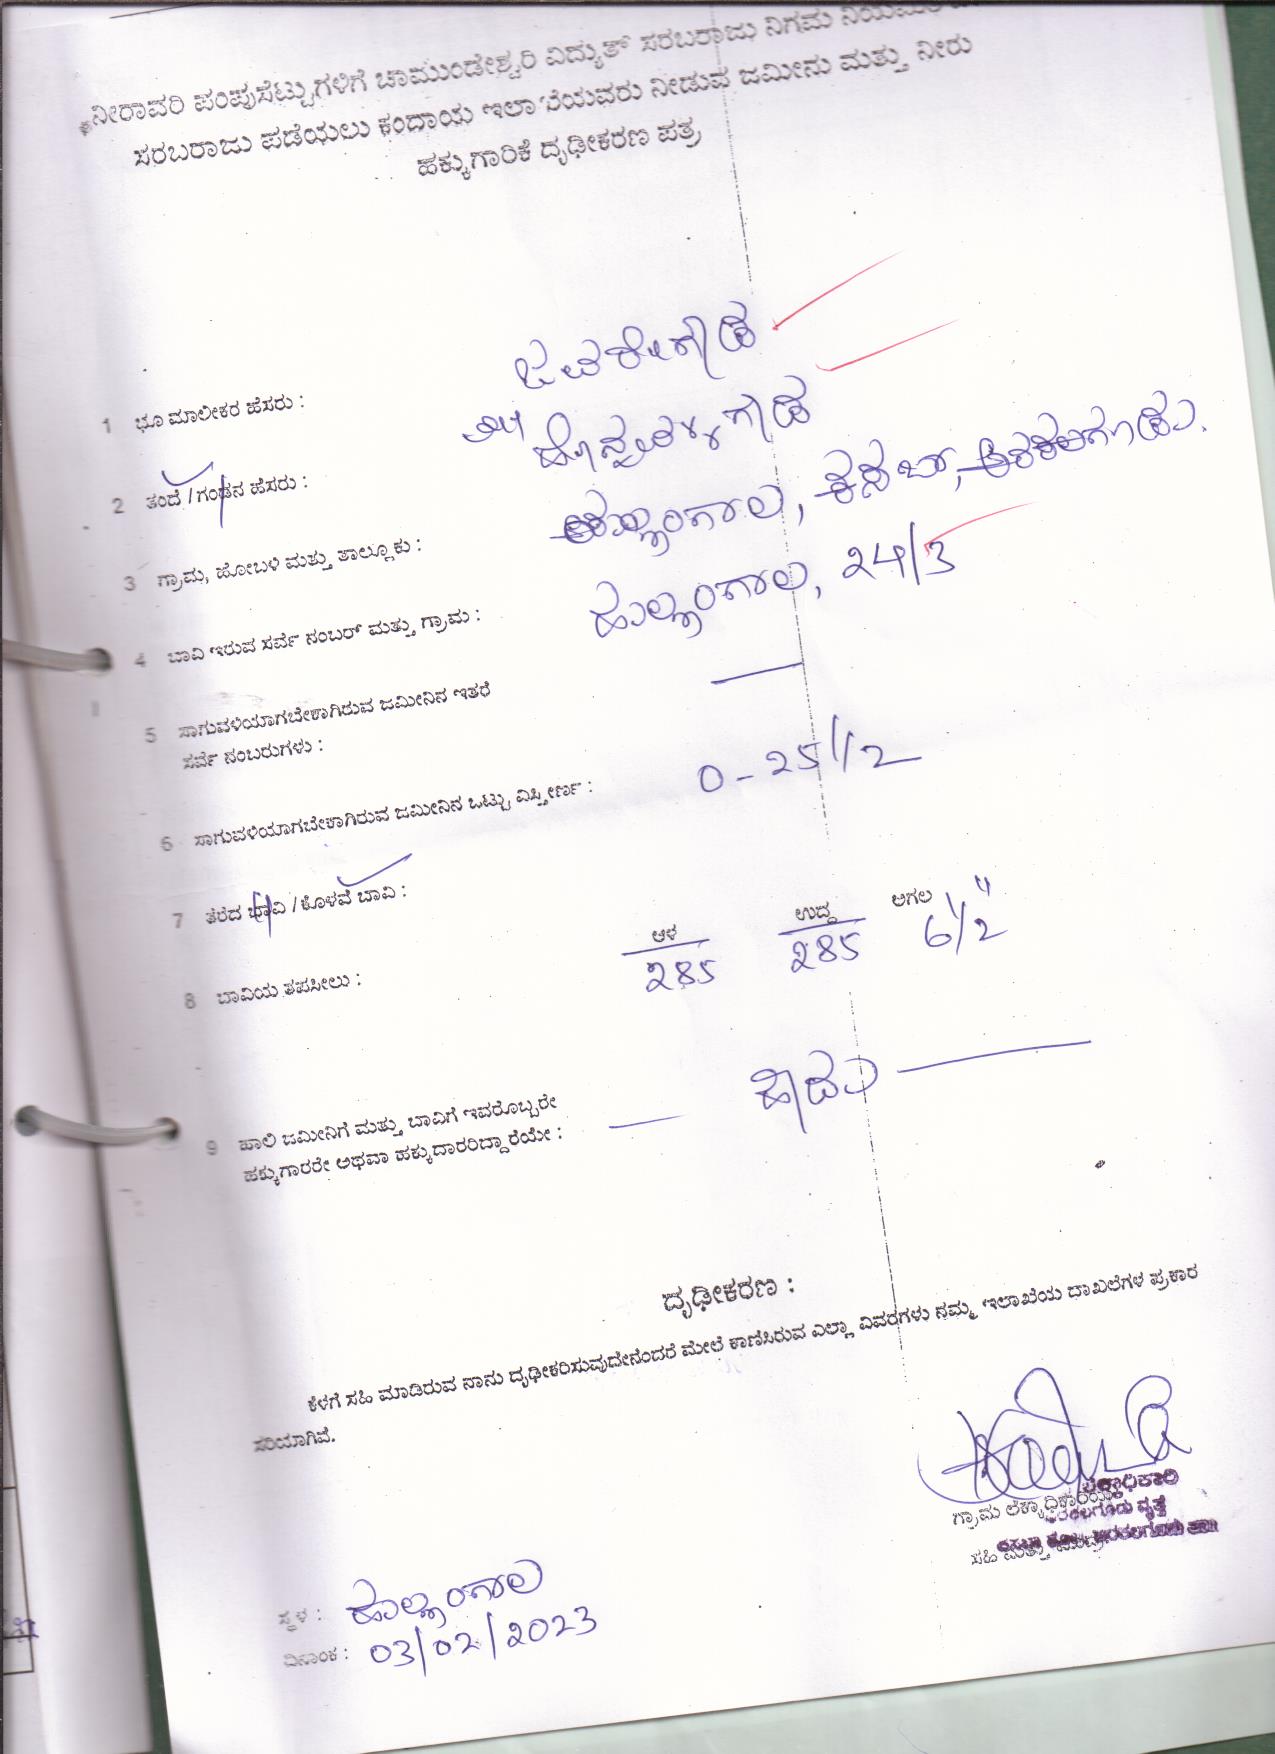 ನೀರಾವರಿ ಪಂಪುಸೆಟ್ಟುಗಳಿಗೆ ಚಾಮುಂಡೇಶ್ವರಿ ವಿದ್ಯುತ್ ಸರಬರಾಜು ನಿಗಮ
ಸರಬರಾಜು ಪಡೆಯಲು ಕಂದಾಯ ಇಲಾಖೆಯವರು ನೀಡುವ ಜಮೀನು ಮತ್ತು ನೀರು
ಹಕ್ಕುಗಾರಿಕೆ ದೃಢೀಕರಣ ಪತ್ರ
1 ಭೂ ಮಾಲೀಕರ ಹೆಸರು : ಜವರೇಗೌಡ
2 ತಂದೆ / ಗಂಡನ ಹೆಸರು :
3 ಗ್ರಾಮ, ಹೋಬಳಿ ಮತ್ತು ತಾಲ್ಲೂಕು : ಹುಲ್ಲಂಗಾಲ, ಕಸಬಾ, ಅರಕಲಗೂಡು.
4 ಬಾವಿ ಇರುವ ಸರ್ವೆ ನಂಬರ್ ಮತ್ತು ಗ್ರಾಮ : ಹುಲ್ಲಂಗಾಲ, 24/3
5 ಸಾಗುವಳಿಯಾಗಬೇಕಾಗಿರುವ ಜಮೀನಿನ ಇತರೆ
ಸರ್ವೆ ನಂಬರುಗಳು :
6 ಸಾಗುವಳಿಯಾಗಬೇಕಾಗಿರುವ ಜಮೀನಿನ ಒಟ್ಟು ವಿಸ್ತೀರ್ಣ : 0 - 25 1/2
7 ತೆರೆದ ಬಾವಿ / ಕೊಳವೆ ಬಾವಿ :
ಆಳ ಉದ್ದ ಅಗಲ
8 ಬಾವಿಯ ತಪಸೀಲು : 285 285 6 1/2"
9 ಹಾಲಿ ಜಮೀನಿಗೆ ಮತ್ತು ಬಾವಿಗೆ ಇವರೊಬ್ಬರೇ
ಹಕ್ಕುಗಾರರೇ ಅಥವಾ ಹಕ್ಕುದಾರರಿದ್ದಾರೆಯೇ : — ಹೌದು —
ದೃಢೀಕರಣ :
ಕೆಳಗೆ ಸಹಿ ಮಾಡಿರುವ ನಾನು ದೃಢೀಕರಿಸುವುದೇನೆಂದರೆ ಮೇಲೆ ಕಾಣಿಸಿರುವ ಎಲ್ಲಾ ವಿವರಗಳು ನಮ್ಮ ಇಲಾಖೆಯ ದಾಖಲೆಗಳ ಪ್ರಕಾರ
ಸರಿಯಾಗಿವೆ.
ಗ್ರಾಮ ಲೆಕ್ಕಾಧಿಕಾರಿಯ
ಸಹಿ ಮತ್ತು
ಸ್ಥಳ : ಹುಲ್ಲಂಗಾಲ
ದಿನಾಂಕ : 03/02/2023